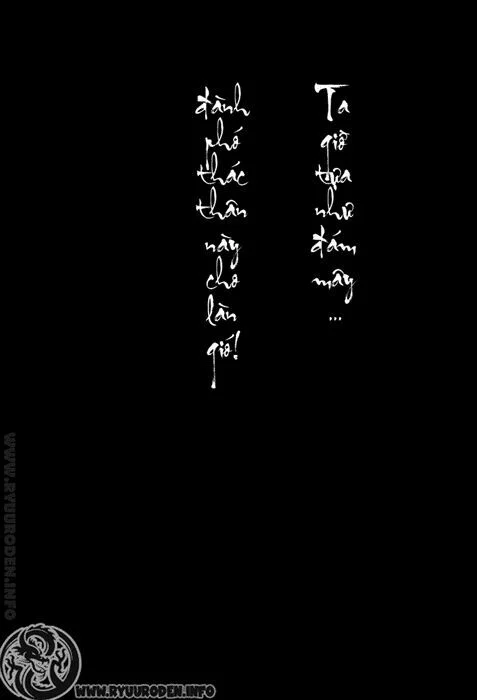 Ta giờ tựa như đám mây ...
đành phó thác thân này cho làn gió!
WWW.RYUURODEN.INFO
WWW.RYUURODEN.INFO